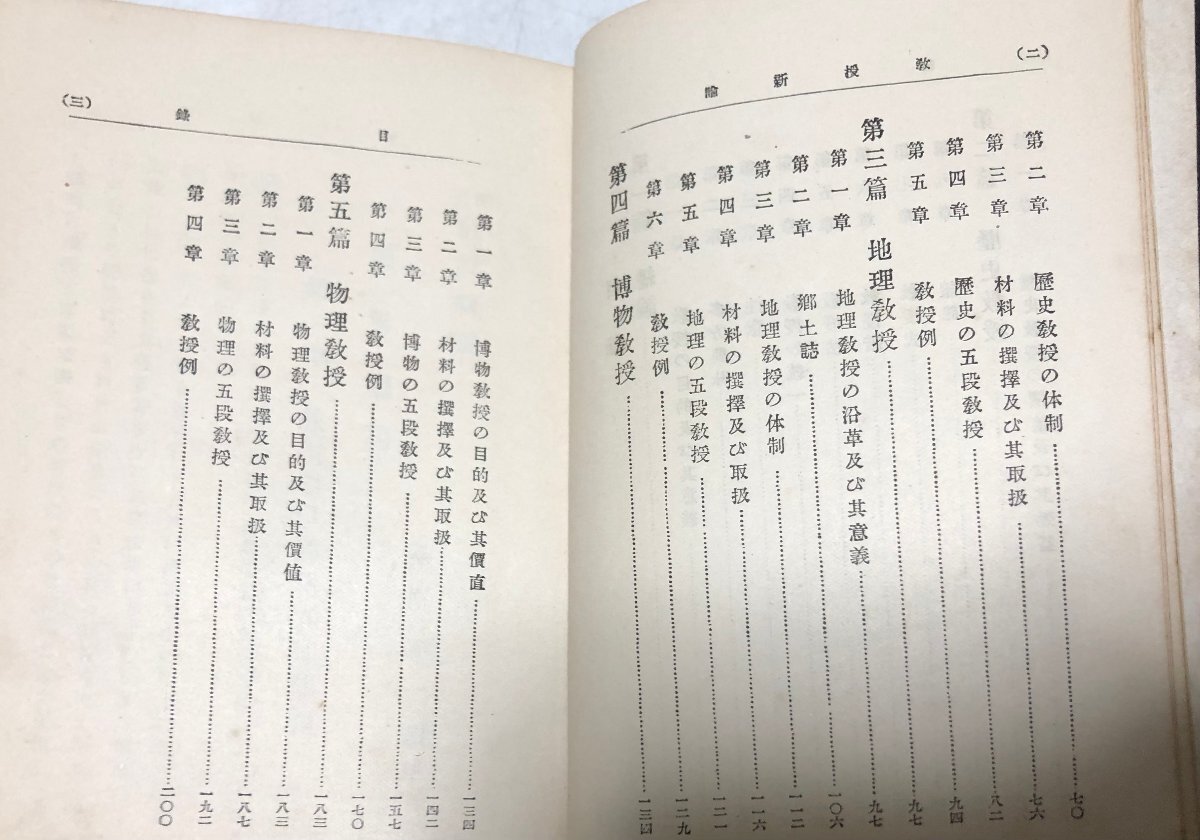 教授新論 (二)
第二章 歷史敎授の体制 七〇
第三章 材料の撰擇及び其取扱 七六
第四章 歷史の五段敎授 八二
第五章 敎授例 九四
第三篇 地理敎授 九七
第一章 地理敎授の沿革及び其意義 九七
第二章 鄕土誌 一〇六
第三章 地理敎授の体制 一一二
第四章 材料の撰擇及び取扱 一一六
第五章 地理の五段敎授 一二一
第六章 敎授例 一二九
第四篇 博物敎授 一三四
目錄 (三)
第一章 博物敎授の目的及び其價直 一三四
第二章 材料の撰擇及び其取扱 一四二
第三章 博物の五段敎授 一五七
第四章 敎授例 一七〇
第五篇 物理敎授 一八三
第一章 物理敎授の目的及び其價値 一八三
第二章 材料の撰擇及び其取扱 一八七
第三章 物理の五段敎授 一九二
第四章 敎授例 二〇〇